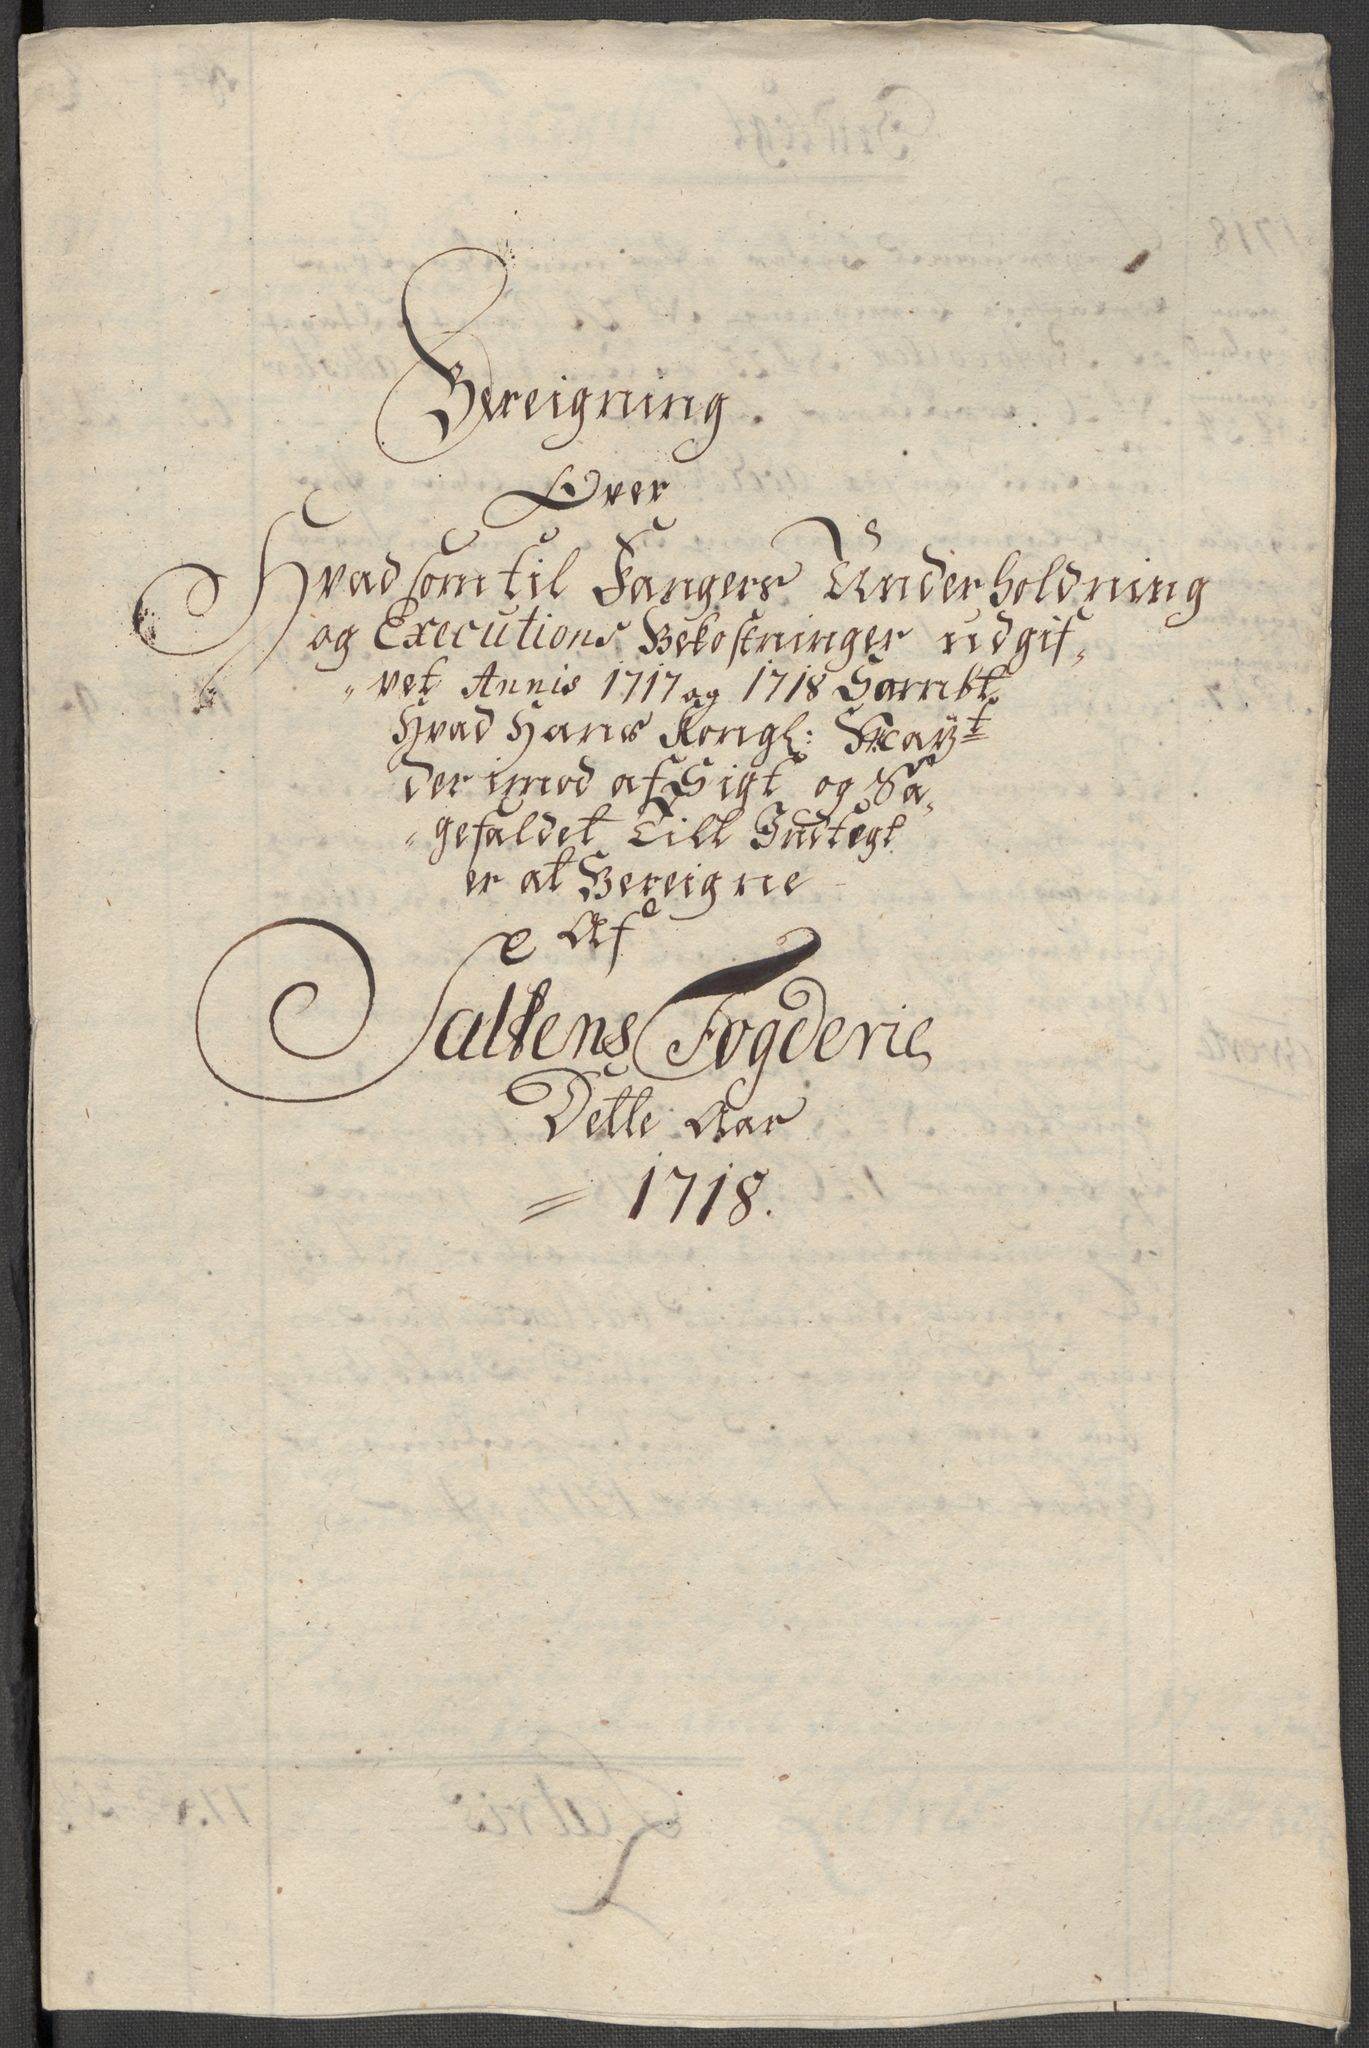 Bereigning
Over
Hvad som til Fangers Underholdning
og Executions Bekostninger udgif„
„vet Annis 1717 og 1718 Sambt
Hvad Hans Kongl: Mayt
der imod af Sigt og Sa„
„gefaldet Till Indtegt
er at Bereigne
Af
Saltens Fogderie
Dette Aar
1718.